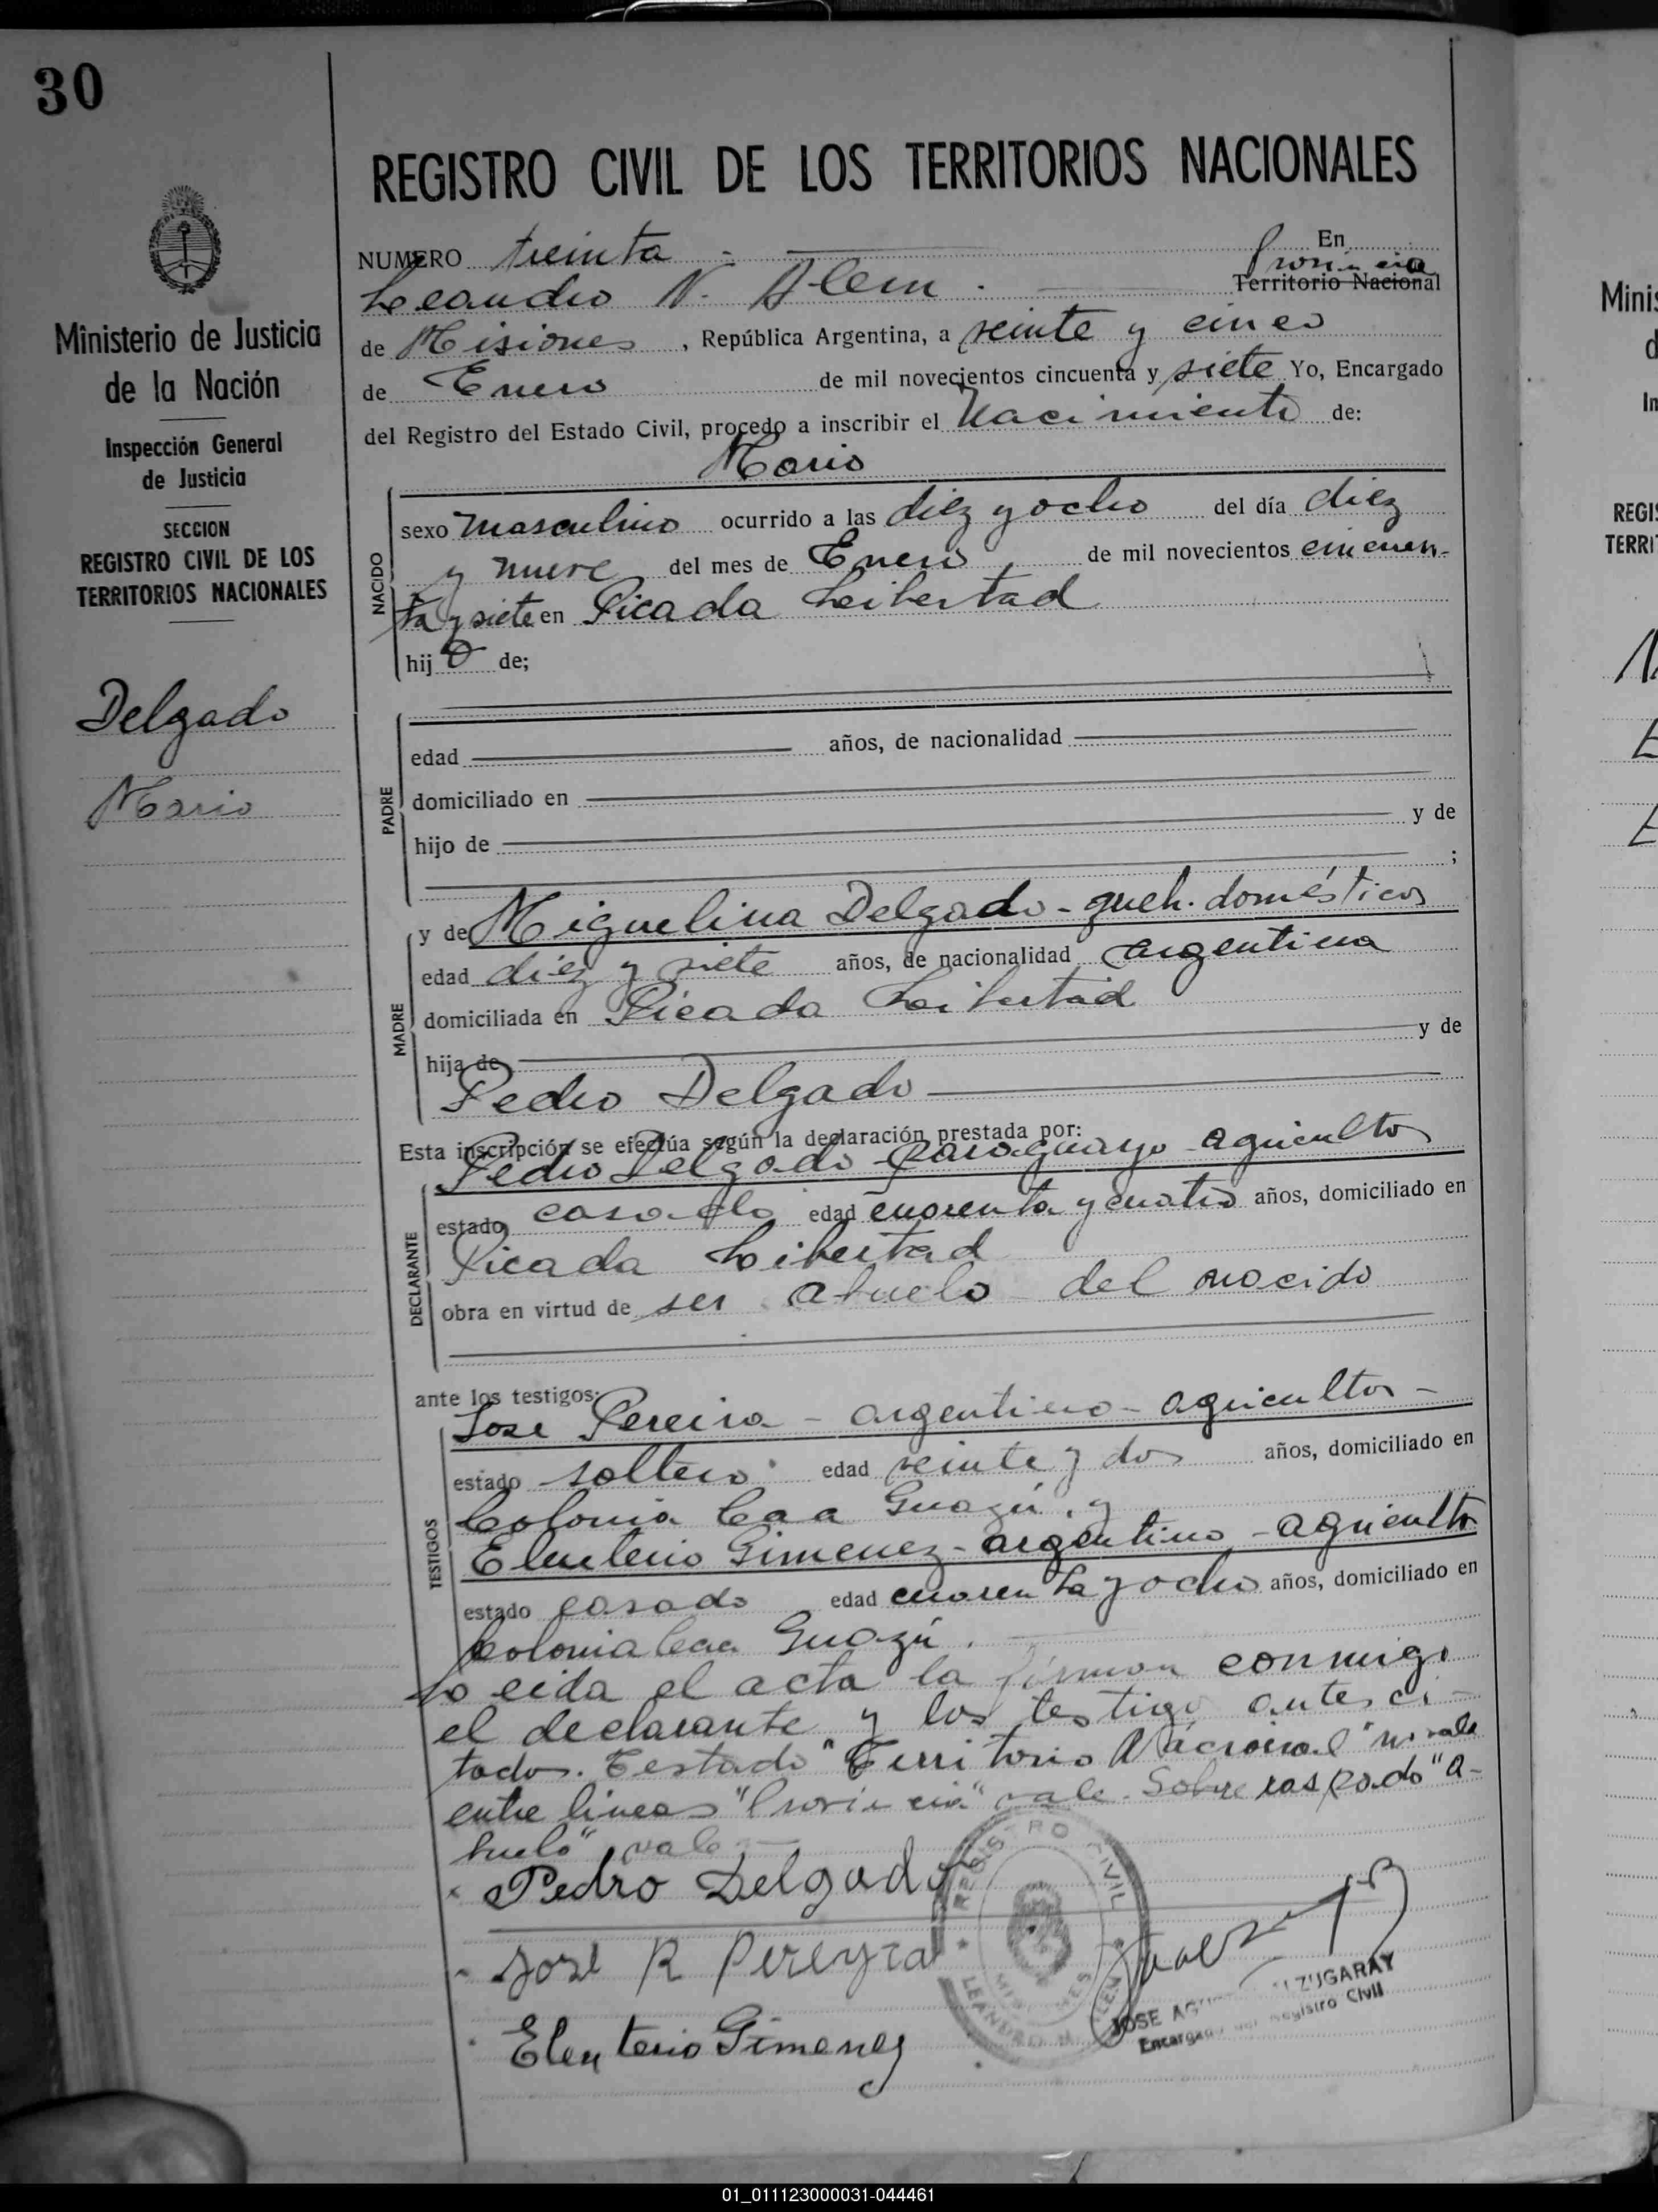 30
REGISTRO CIVIL DE LOS TERRITORIOS NACIONALES
Ministerio de Justicia
de la Nación
Inspección General
de Justicia
SECCION
REGISTRO CIVIL DE LOS
TERRITORIOS NACIONALES
Delgado
Mario
NUMERO treinta En
Leandro N. Alem. Provincia Territorio Nacional
de Misiones, República Argentina, a veinte y cinco
de Enero de mil novecientos cincuenta y siete Yo, Encargado
del Registro del Estado Civil, procedo a inscribir el Nacimiento de:
Mario
NACIDO
sexo masculino ocurrido a las diez y ocho del día diez
y nueve del mes de Enero de mil novecientos cincuen-
ta y siete en Picada Libertad
hijo de;
PADRE
edad años, de nacionalidad
domiciliado en
hijo de y de
;
MADRE
y de Miguelina Delgado - queh. domésticos
edad diez y siete años, de nacionalidad argentina
domiciliada en Picada Libertad
hija de y de
Pedro Delgado
Esta inscripción se efectúa según la declaración prestada por:
DECLARANTE
Pedro Delgado - paraguayo - agricultor
estado casado edad cuarenta y cuatro años, domiciliado en
Picada Libertad
obra en virtud de ser abuelo del nacido
ante los testigos:
TESTIGOS
Jose Pereira - argentino - agricultor -
estado soltero edad veinte y dos años, domiciliado en
Colonia Caa Guazú, y
Eleuterio Gimenez - argentino - agricultor
estado casado edad cuarenta y ocho años, domiciliado en
Colonia Caa Guazú.
Leida el acta la firman conmigo
el declarante y los testigo antes ci-
tados. Testado "Territorio Nacional" no vale
entre lineas "Provincia" vale. Sobre raspado "a-
buelo" vale
Pedro Delgado
Jose R Pereyra
Eleuterio Gimenez
REGISTRO CIVIL
MISIONES
LEANDRO N. ALEM
JOSE AGUS ZUGARAY
Encargado del Registro Civil
Minis
d
In
REGIS
TERRI
01_011123000031-044461